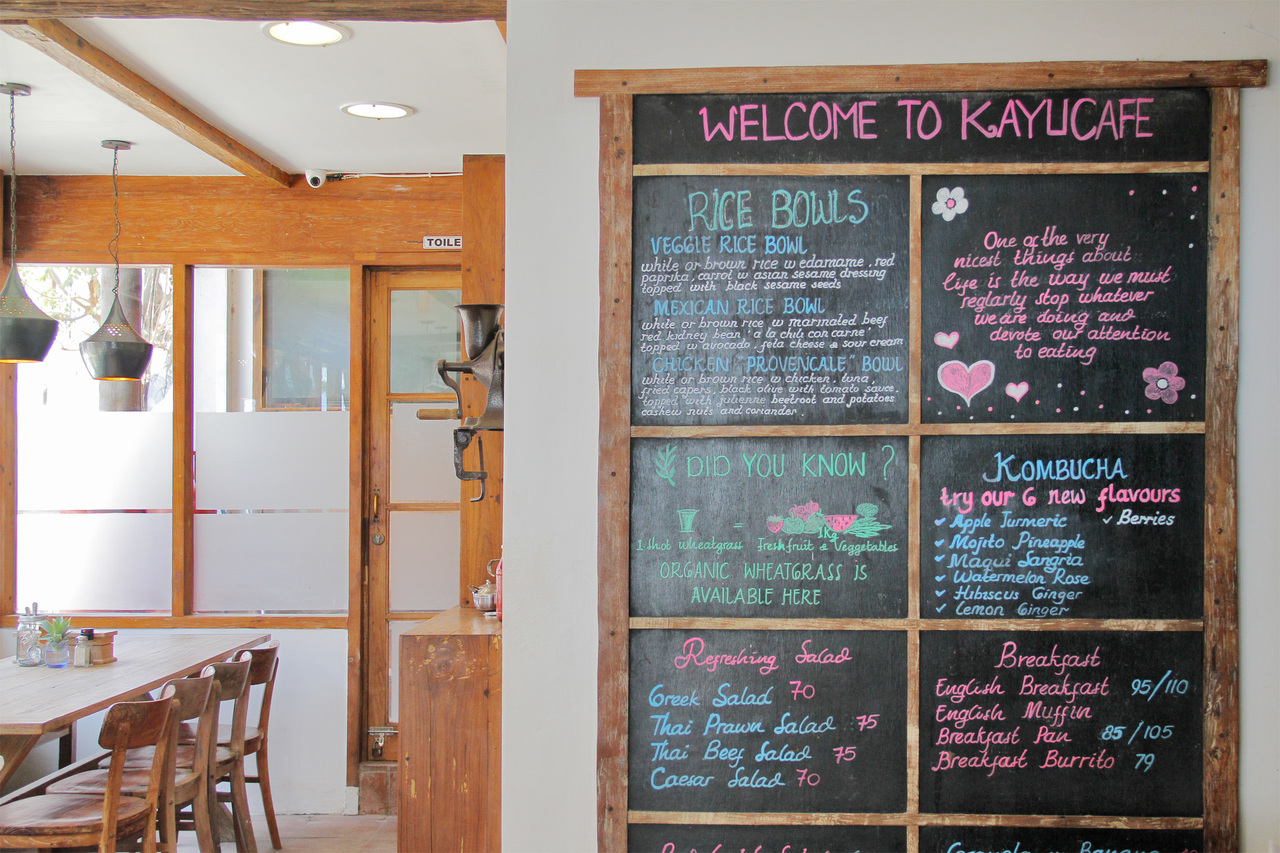 TOILE
WELCOME TO KAYUCAFE
RICE BOWLS
VEGGIE RICE BOWL
white or brown rice w edamame, red
paprika, carrot w asian sesame dressing
topped with black sesame seeds
MEXICAN RICE BOWL
white or brown rice w marinated beef
red kidney bean 'a la chili con carne'
topped w avocado, feta cheese & sour cream
CHICKEN "PROVENCALE" BOWL
white or brown rice w chicken, tuna,
fried capers, black olive with tomato sauce,
topped with julienne beetroot and potatoes
cashew nuts and coriander.
One of the very
nicest things about
life is the way we must
reglarly stop whatever
we are doing and
devote our attention
to eating
DID YOU KNOW ?
=
1Kg
1 shot wheatgrass Fresh fruit & Veggetables
ORGANIC WHEATGRASS IS
AVAILABLE HERE
KOMBUCHA
try our 6 new flavours
✓ Apple Turmeric ✓ Berries
✓ Mojito Pineapple
✓ Maqui Sangria
✓ Watermelon Rose
✓ Hibiscus Ginger
✓ Lemon Ginger
Refreshing Salad
Greek Salad 70
Thai Prawn Salad 75
Thai Beef Salad 75
Caesar Salad 70
Breakfast
English Breakfast 95/110
English Muffin
Breakfast Pan 85/105
Breakfast Burrito 79